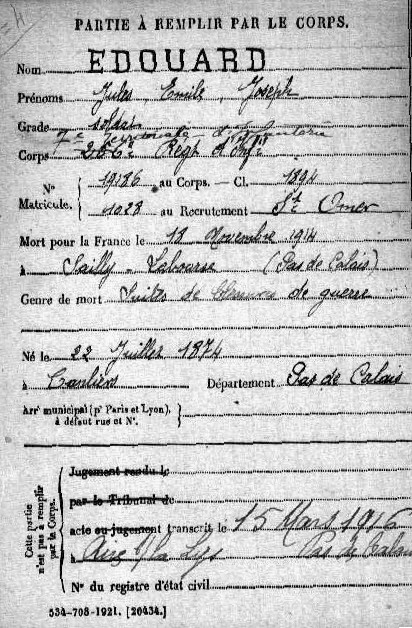 PARTIE À REMPLIR PAR LE CORPS.
Nom EDOUARD
Prénoms Jules, Emile, Joseph
Grade soldat
7e d'Infanterie
Corps Regt d'Infie
Nos Matricule. 19186 au Corps. — Cl. 1894
1028 au Recrutement St Omer
Mort pour la France le 18 Novembre 1914
à Sailly - Labourse (Pas de Calais)
Genre de mort Suites de blessures de guerre
Né le 22 Juillet 1874
à Département Pas de Calais
Arrt municipal (pr Paris et Lyon),
à défaut rue et No.
Cette partie n'est pas à remplir par le Corps.
Jugement rendu le
par le Tribunal de
acte ou jugement transcrit le 15 Mars 1916
à Aire s/la Lys Pas de Calais
No du registre d'état civil
534-708-1921. [20434.]